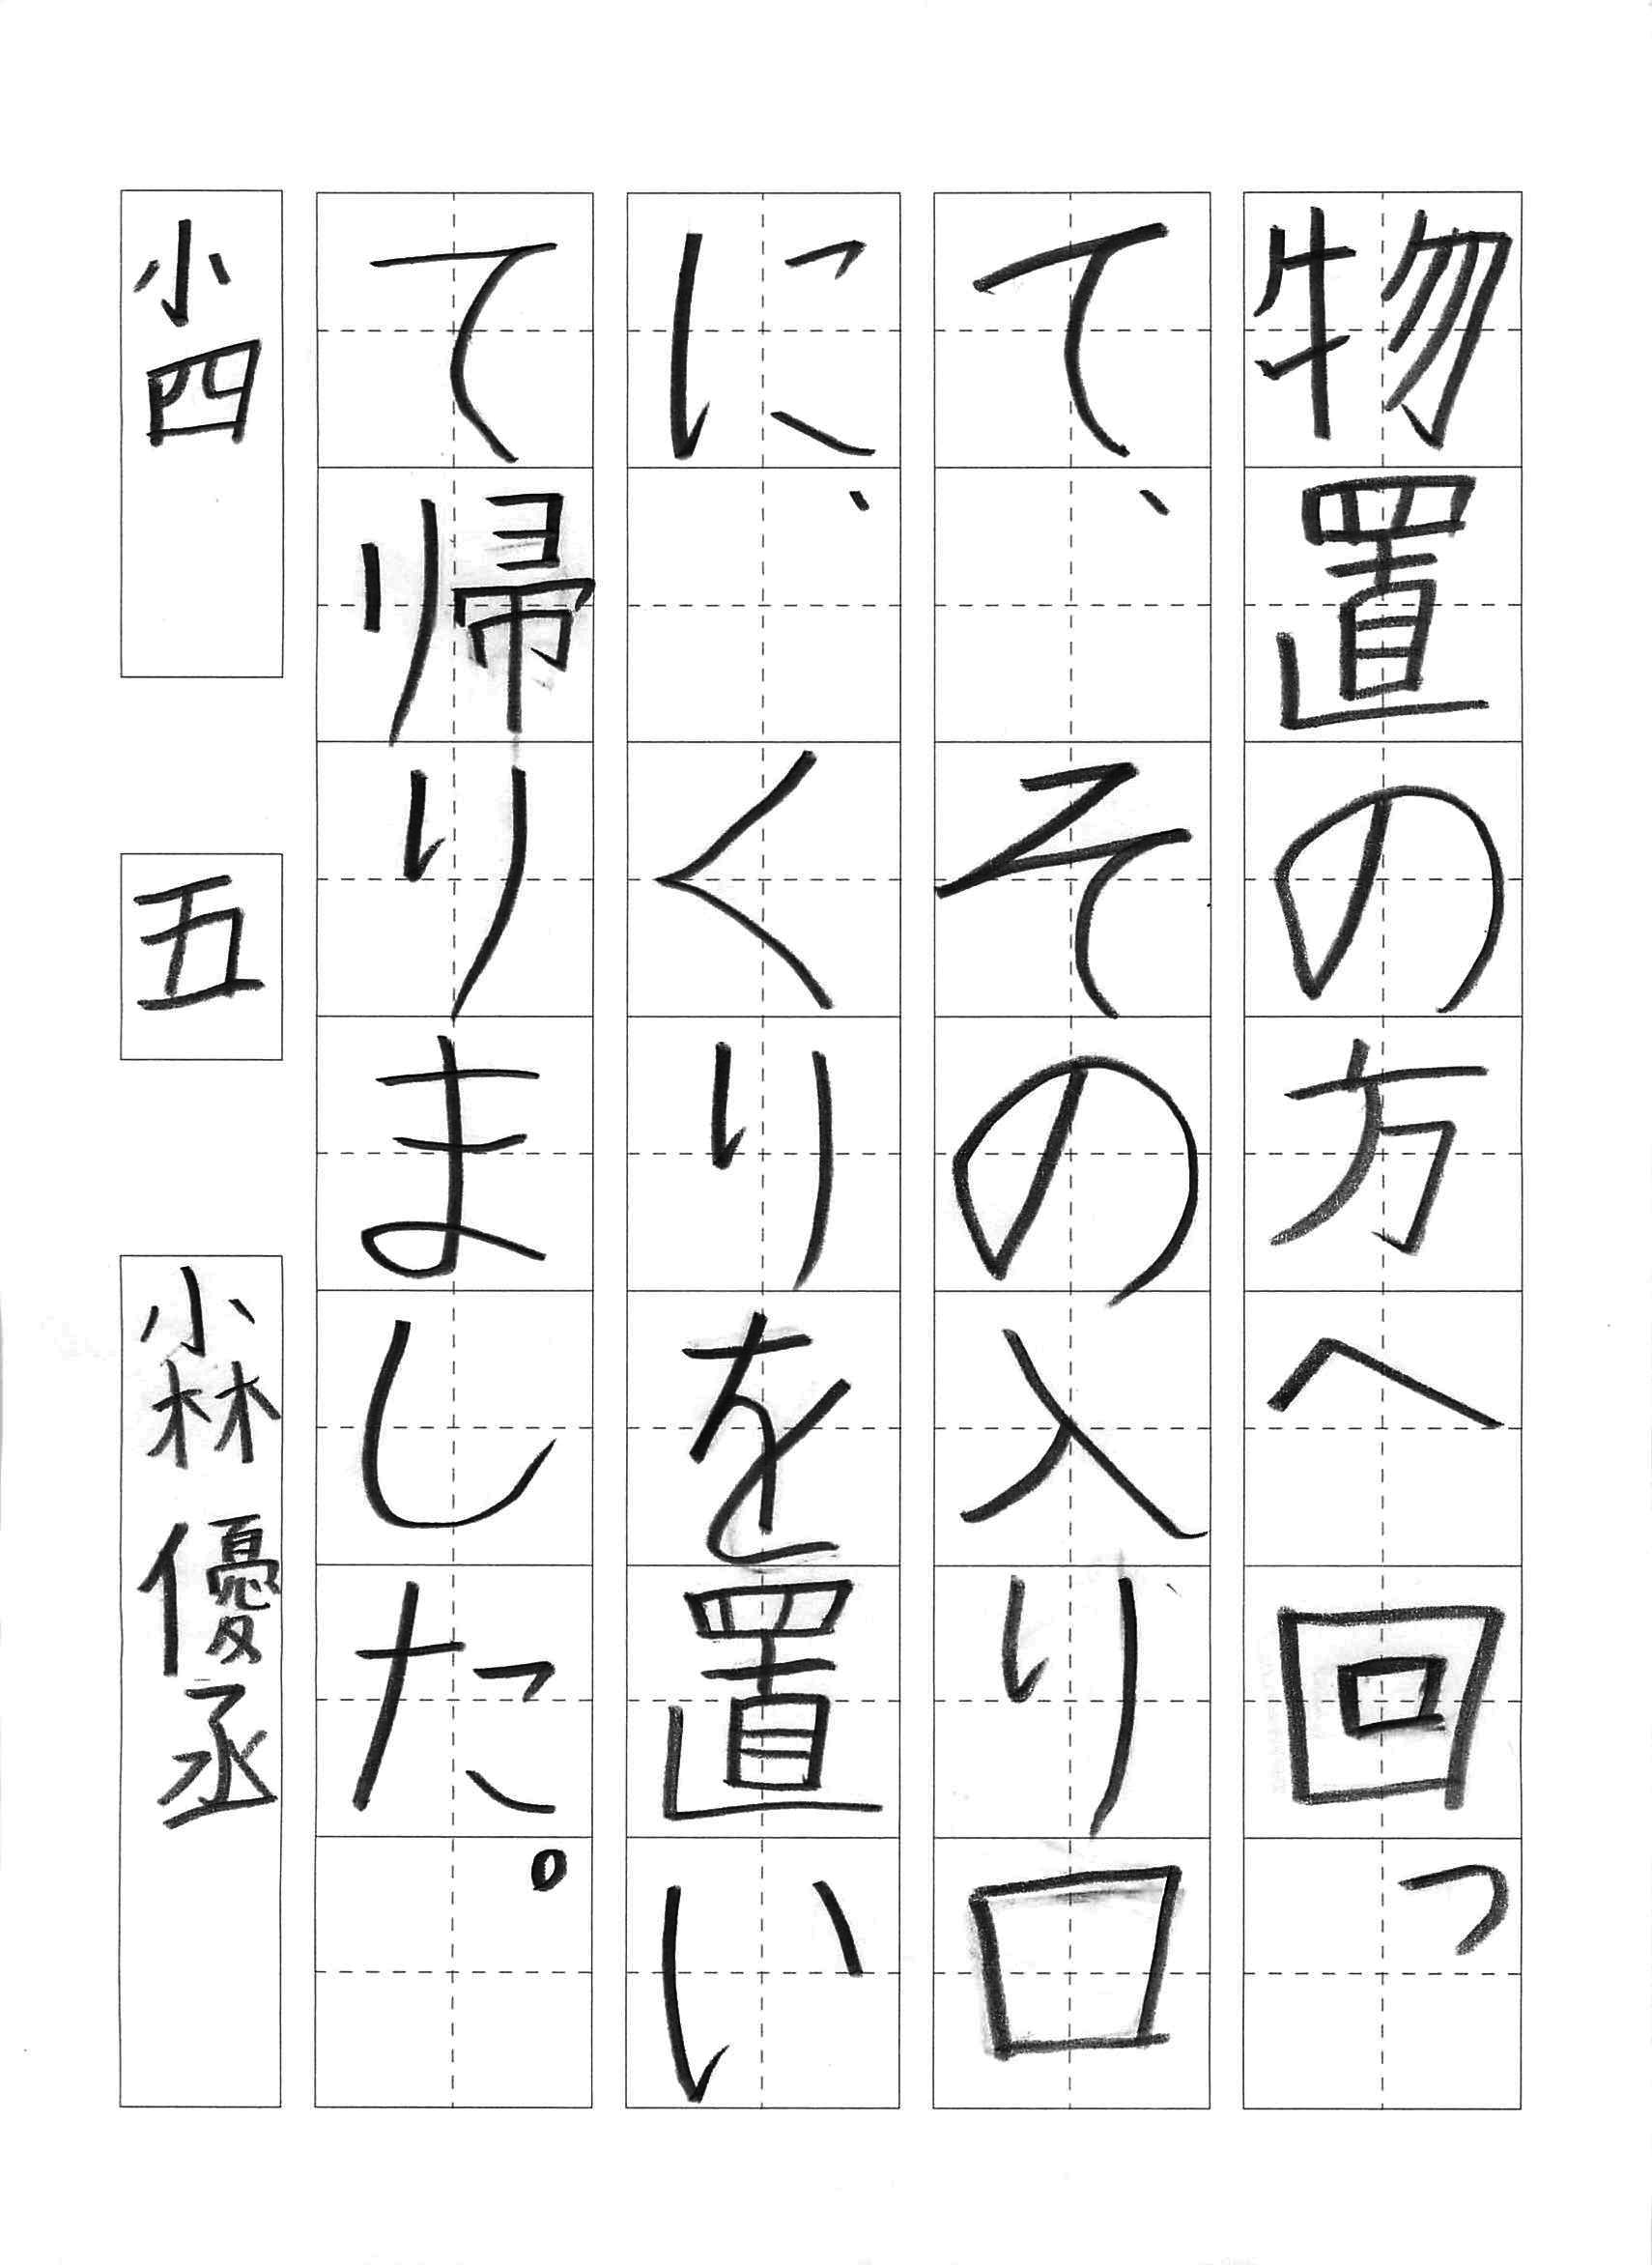 物置の方へ回っ
て、その入り口
に、くりを置い
て帰りました。
小四 五 小林優丞